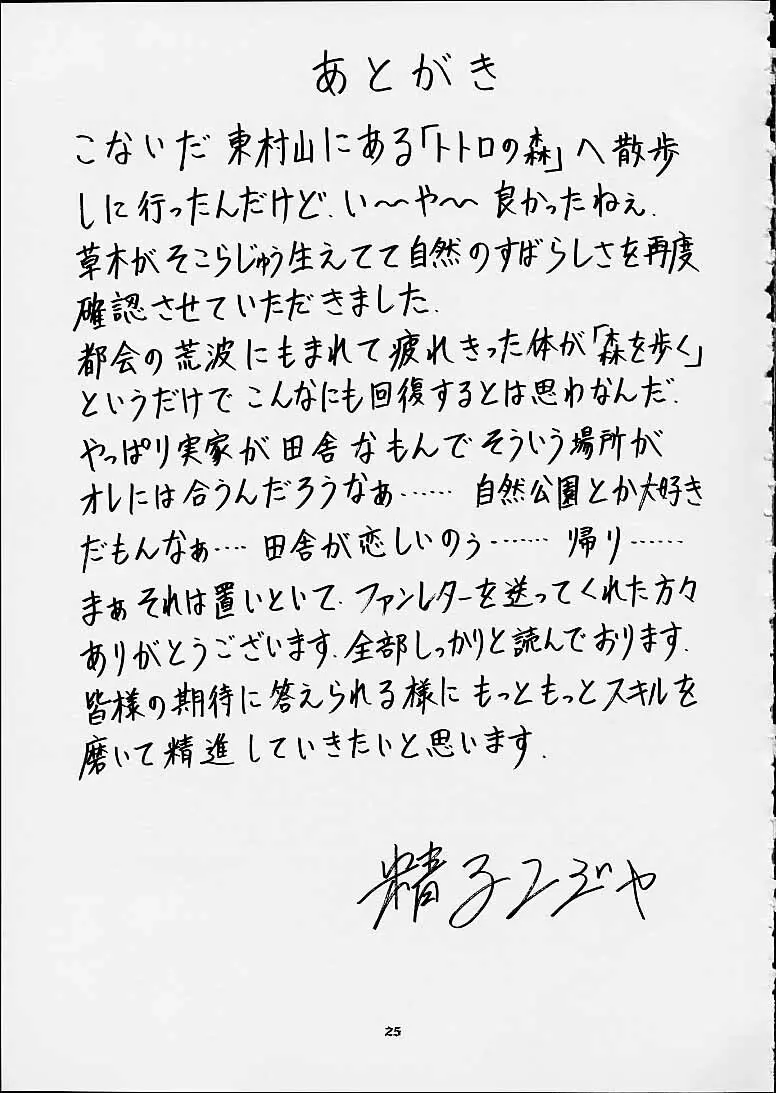 あとがき
こないだ 東村山にある「トトロの森」へ散歩
しに行ったんだけど、い〜や〜 良かったねぇ.
草木がそこらじゅう生えてて自然のすばらしさを再度
確認させていただきました.
都会の荒波にもまれて疲れきった体が「森を歩く」
というだけで こんなにも回復するとは思わなんだ.
やっぱり実家が田舎なもんでそういう場所が
オレには合うんだろうなぁ…… 自然公園とか大好き
だもんなぁ…. 田舎が恋しいのぅ…… 帰り……
まぁそれは置いといて、ファンレターを送ってくれた方々
ありがとうございます.全部しっかりと読んでおります.
皆様の期待に答えられる様にもっともっとスキルを
磨いて精進していきたいと思います.
25